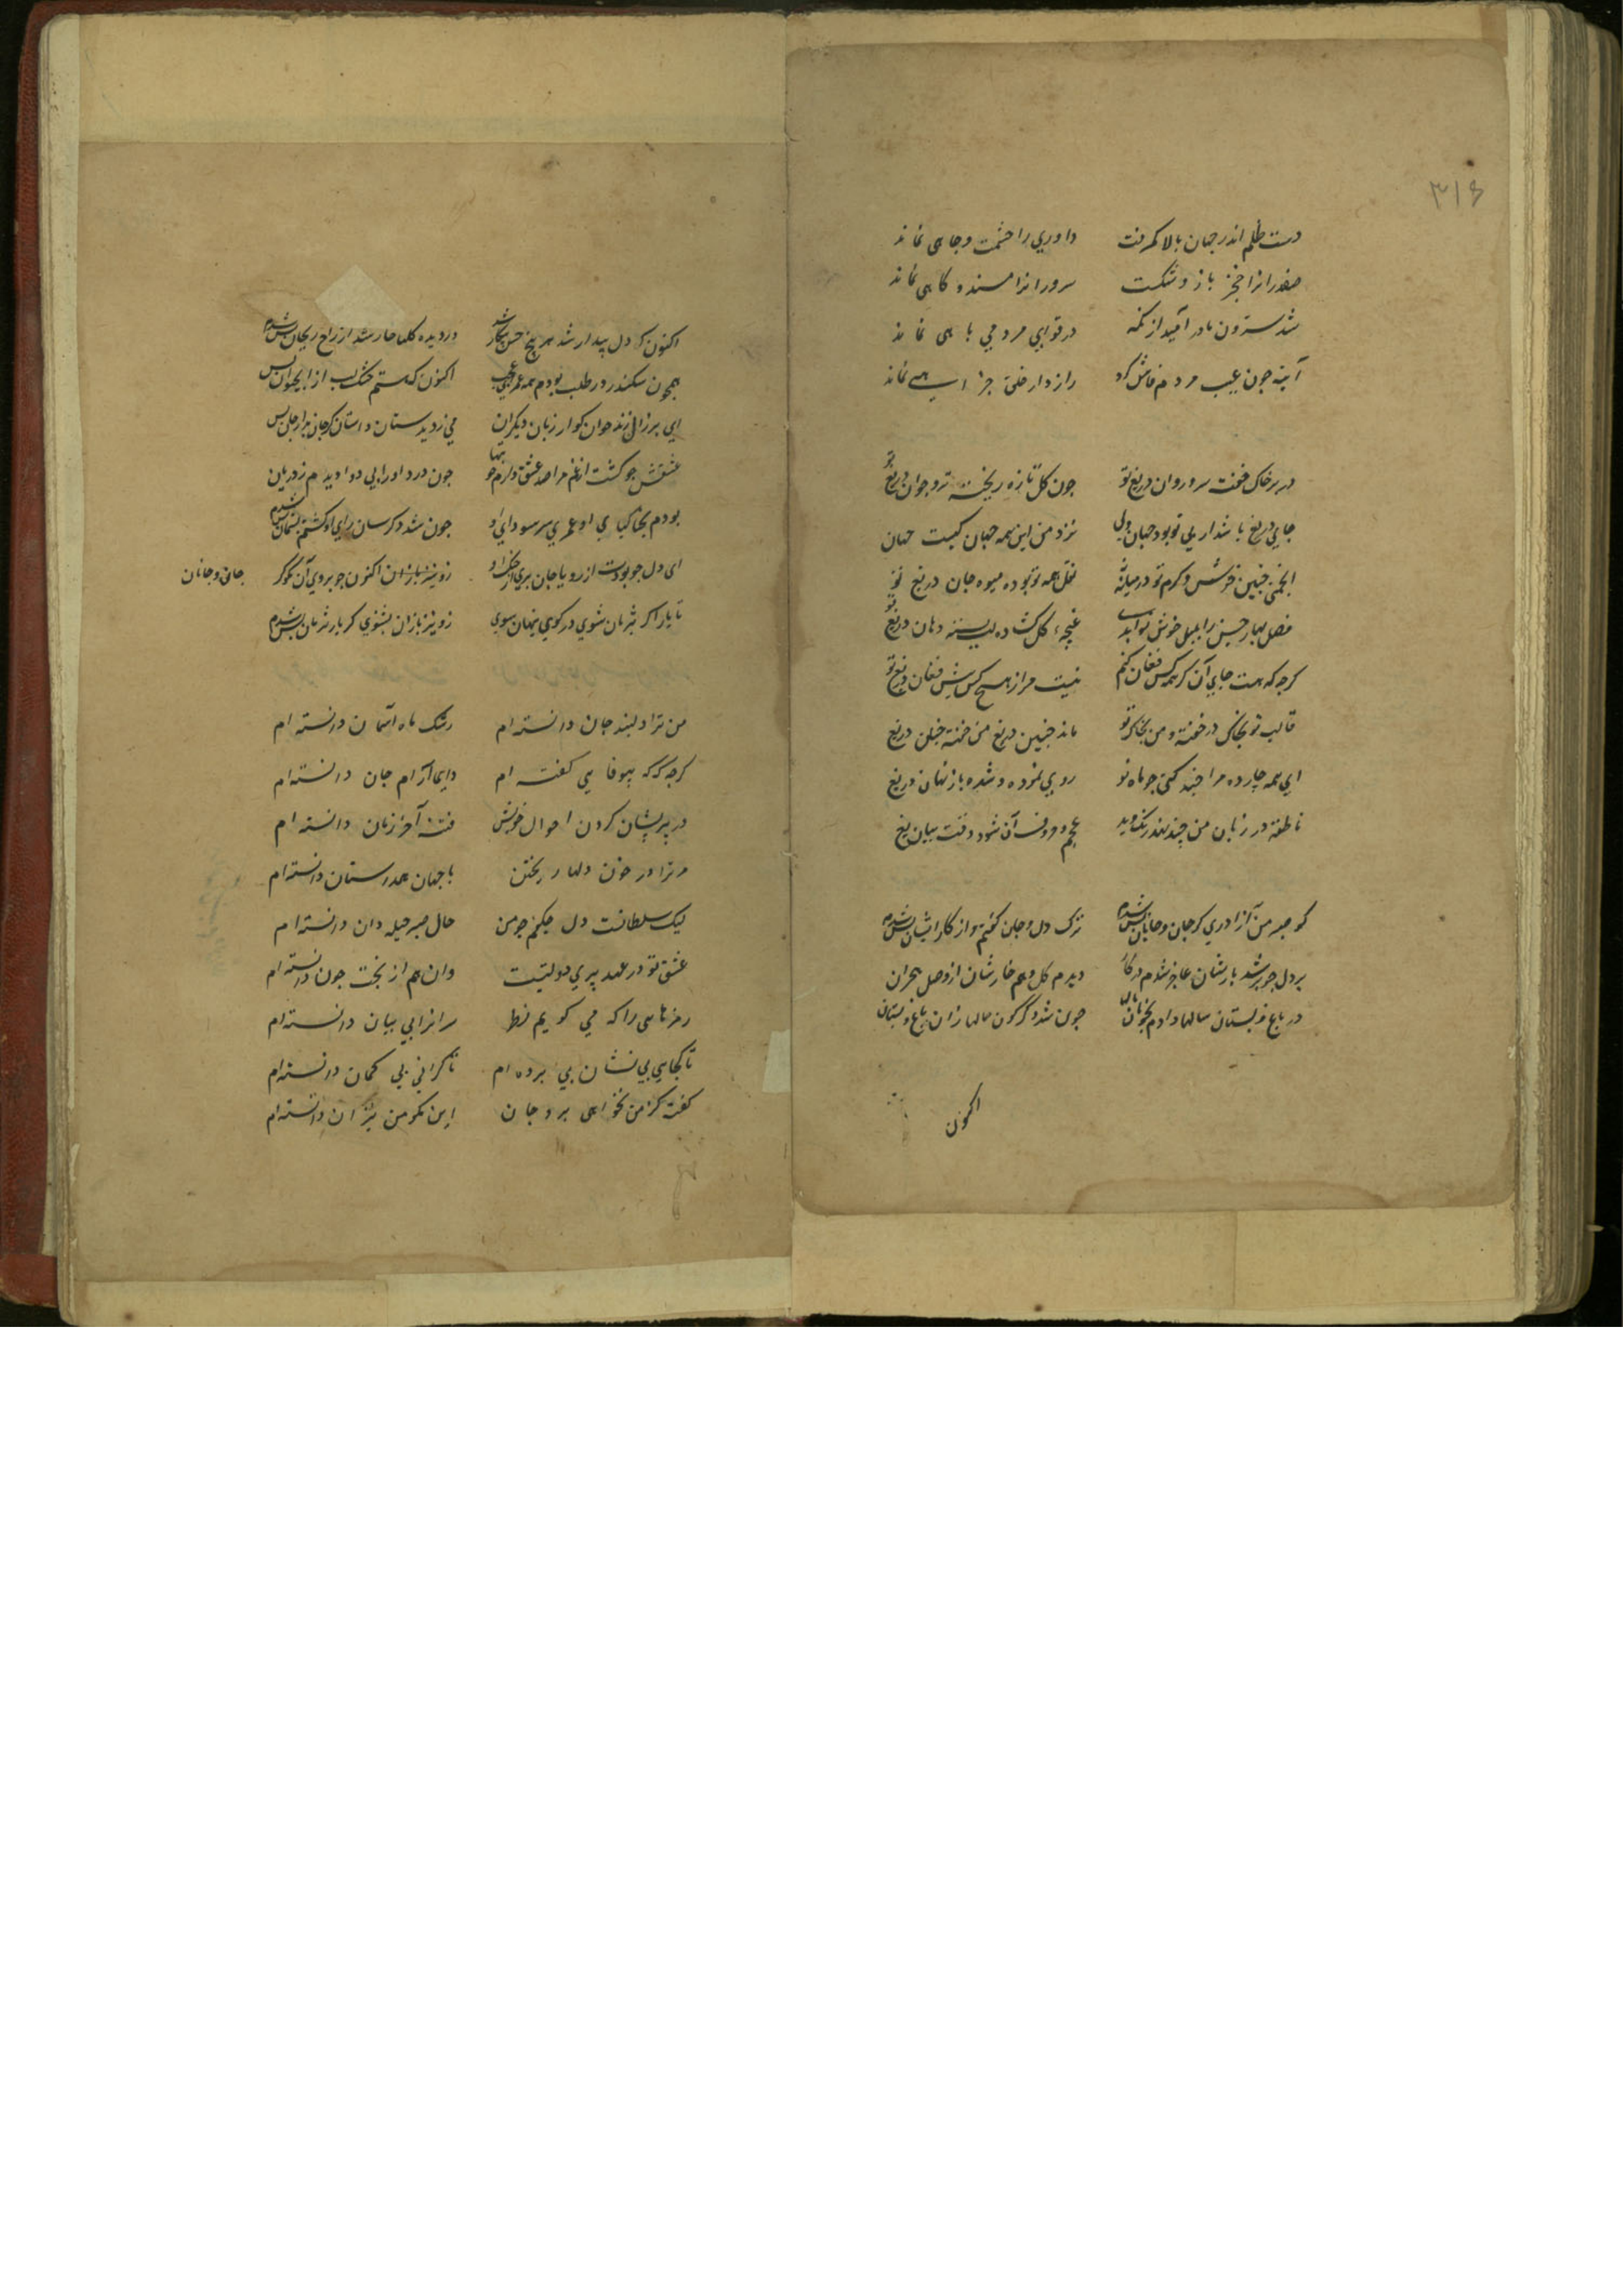 ۳۱۶
دست ظلم اندر جهان بالا گرفت داوری را حشمت و جاهی نماند
صفدرانرا خنجر بازو شکست سرورانرا مسند و کاهی نماند
شد سترون مادر امید از درقوای مردمی باهی نماند
آینه چون عیب مردم فاش کرد رازدار خلق جز نماند
در بر خاک خفت سرو روان دریغ تو چون کل تازه ریخته جوان دریغ تو
جای دریغ باشد ار بی تو بود جهان ولی نزد من این همه جهان کیست جهان
انجمنی چنین خوش و کرم تو در میانه نقل همه تو بوده میوه جان دریغ تو
فصل بهار بلبل خوش غنچه کل کشاده لب بسته دهان دریغ تو
کرچه که هست جای آن کز همه کس فغان کنم نیست مرا ز هیچ کس فغان دریغ تو
قالب تو بخاک در خفته و من بخاک تو ماند چنین دریغ من خفته چنان دریغ
ای مه چارده مرا چند کنی چو ماه نو روی نموده و شده باز نهان دریغ
ناطقه در زبان من چند آن شود وقت بیان دریغ
کو صبر من آزادری کز جان و جانان بس شدم ترک دل و جان کویم و از کار ایشان بس شدم
بر دل چو پر شد بارشان عاجز شدم در کار دیدم کل و هم خارشان از وصل هجران
در باغ و بستان سالها دادم چون شد دکرکون حالها زان باغ و بستان
اکنون
اکنون که دل بیدار شد در دیده کلها خار شد از راح ریحان بس شدم
همچون سکندر در طلب بودم همه عمر ای عجب اکنون که هستم خشک لب از آب حیوان بس
ای بر زبان دیکران می زد بدستان داستان
عشقش چو کشت از غم مرا صد عشق دارم چون درد او را بی دوا دیدم ز درمان
بودم بخاک پای او عمری سر سودای او چون شد دکر سان رای او کشتم پشیمان بس شدم
ای دل چو بودت از رو یا جان بری زو نیز باز ان اکنون چو بر وی آن نکو کر جان و جانان
تا یار اکر شرمان شوی در کوی پنهان سوی زو نیز باز ان بشنوی کر یار شرمان بس شدم
من ترا دلبند جان دانسته ام رشک ماه آسمان دانسته ام
کرچه که که بیوفایی کفته ام دایما آرام جان دانسته ام
در پریشان کردن احوال خویش فتنه آخر زمان دانسته ام
مر ترا در خون دلها ریختن با جهان همداستان دانسته ام
لیک سلطانست دل چکنم چو من حال صبر حیله دان دانسته ام
عشق تو در عهد پیری دولتیست وان هم از بخت جوان دانسته ام
رمزهایی را که می کویم نظر سر انرا بی بیان دانسته ام
تا کجایی بی نشان پی برده ام تا کرانی بی کمان دانسته ام
کفته کز من نخواهی برد جان این نکو من پیش ازان دانسته ام